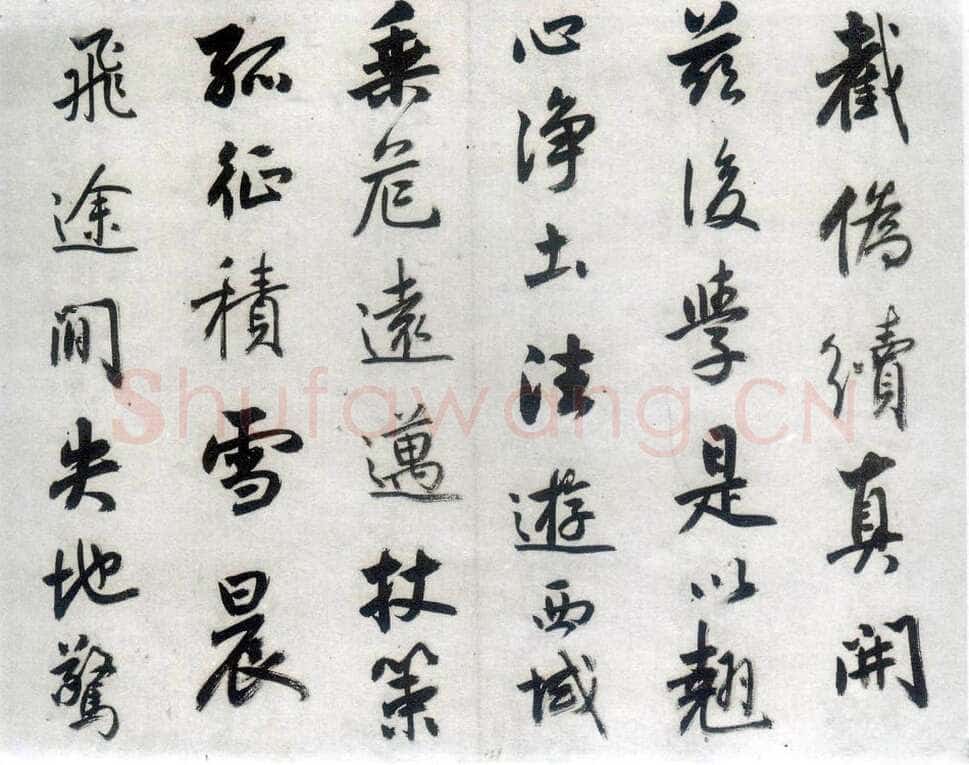 截偽續真開
茲後學是以翹
心淨土法遊西域
乗危遠邁杖策
孤征積雪晨
飛途間失地驚
Shufawang.CN